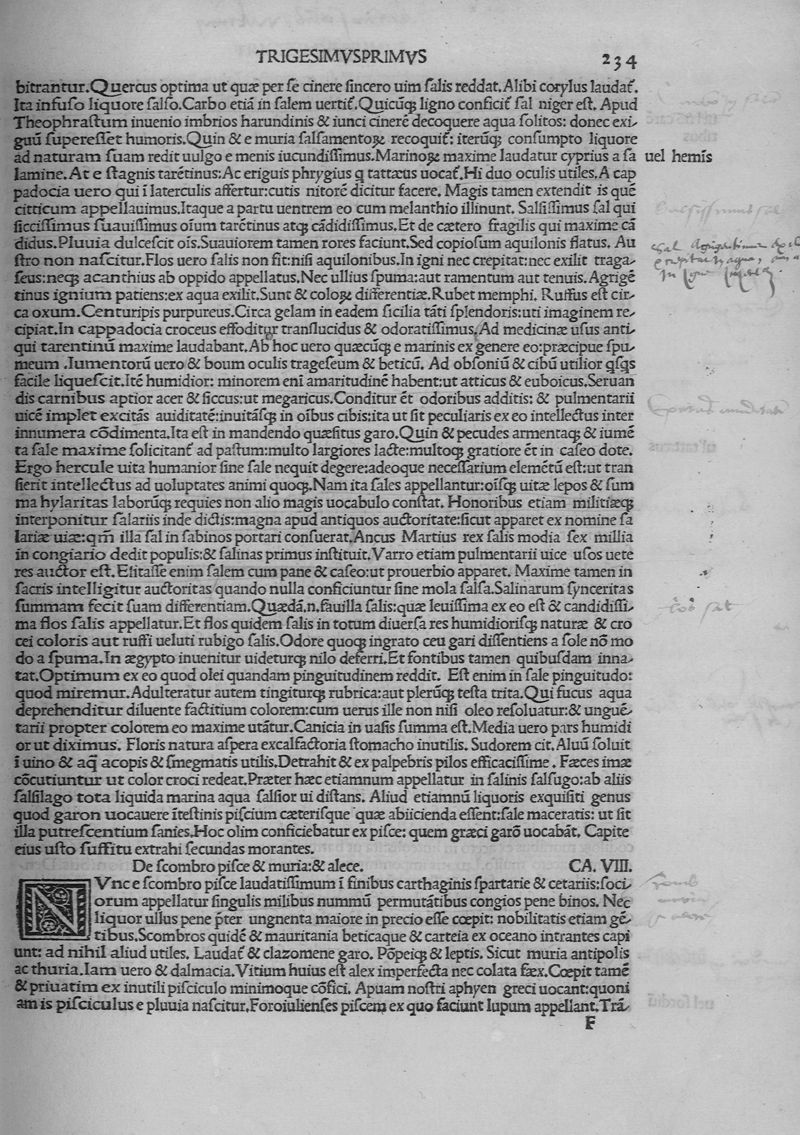 TRIGESIMVSPRIMVS 234
bitrantur.Quercus optima ut quæ per ſe cinere ſincero uim ſalis reddat.Alibi corylus laudat᷑.
Ita infuſo liquore ſalſo.Carbo etiã in ſalem uertit᷑.Quicũꝗ ligno conficit᷑ ſal niger eſt. Apud
Theophraſtum inuenio imbrios harundinis & iunci cinerẽ decoquere aqua ſolitos: donec exi-
guũ ſupereſſet humoris.Quin & e muria ſalſamentoꝝ recoquit᷑: iterũꝗ conſumpto liquore
ad naturam ſuam redit uulgo e menis iucundiſſimus.Marinoꝝ maxime laudatur cyprius a ſa uel hemĩs
lamine.At e ſtagnis tarẽtinus:Ac eriguis phrygius q tattæus uocat᷑.Hi duo oculis utiles.A cap
padocia uero qui ĩ laterculis affertur:cutis nitorẽ dicitur facere. Magis tamen extendit is quẽ
citticum appellauimus.Itaque a partu uentrem eo cum melanthio illinunt. Salſiſſimus ſal qui
ſicciſſimus ſuauiſſimus oĩum tarẽtinus atꝗ cãdidiſſimus.Et de cætero fragilis qui maxime cã
didus.Pluuia dulceſcit oĩs.Suauiorem tamen rores faciunt.Sed copioſum aquilonis flatus. Au
ſtro non naſcitur.Flos uero ſalis non fit:niſi aquilonibus.In igni nec crepitat:nec exilit traga-
ſeus:neꝗ acanthius ab oppido appellatus.Nec ullius ſpuma:aut ramentum aut tenuis.Agrigẽ
tinus ignium patiens:ex aqua exilit.Sunt & coloꝝ differentiæ.Rubet memphi. Ruffus eſt cir-
ca oxum.Centuripis purpureus.Circa gelam in eadem ſicilia tãti ſplendoris:uti imaginem re-
cipiat.In cappadocia croceus effoditur tranſlucidus & odoratiſſimus.Ad medicinæ uſus anti-
qui tarentinũ maxime laudabant.Ab hoc uero quæcũꝗ e marinis ex genere eo:præcipue ſpu-
meum .Iumentorũ uero & boum oculis trageſeum & beticũ. Ad obſoniũ & cibũ utilior qſꝗs
facile liqueſcit.Itẽ humidior: minorem enĩ amaritudinẽ habent:ut atticus & euboicus.Seruan
dis carnibus aptior acer & ſiccus:ut megaricus.Conditur ẽt odoribus additis: & pulmentarii
uicẽ implet excitãs auiditatẽ:inuitãſꝗ in oĩbus cibis:ita ut ſit peculiaris ex eo intellectus inter
innumera cõdimenta.Ita eſt in mandendo quæſitus garo.Quin & pecudes armentaꝗ & iumẽ
ta ſale maxime ſolicitant᷑ ad paſtum:multo largiores lacte:multoꝗ gratiore ẽt in caſeo dote.
Ergo hercule uita humanior ſine ſale nequit degere:adeoque neceſſarium elemẽtũ eſt:ut tran
ſierit intellectus ad uoluptates animi quoꝗ.Nam ita ſales appellantur:oĩſꝗ uitæ lepos & ſum
ma hylaritas laborũꝗ requies non alio magis uocabulo conſtat. Honoribus etiam militiæꝗ
interponitur ſalariis inde dictis:magna apud antiquos auctoritate:ſicut apparet ex nomine ſa
lariæ uiæ:qm̃ illa ſal in ſabinos portari conſuerat.Ancus Martius rex ſalis modia ſex millia
in congiario dedit populis:& ſalinas primus inſtituit.Varro etiam pulmentarii uice uſos uete
res auctor eſt.Elitaſſe enim ſalem cum pane & caſeo:ut prouerbio apparet. Maxime tamen in
ſacris intelligitur auctoritas quando nulla conficiuntur ſine mola ſalſa.Salinarum ſynceritas
ſummam fecit ſuam differentiam.Quædã.n.fauilla ſalis:quæ leuiſſima ex eo eſt & candidiſſi-
ma flos ſalis appellatur.Et flos quidem ſalis in totum diuerſa res humidioriſꝗ naturæ & cro
cei coloris aut ruffi ueluti rubigo ſalis.Odore quoꝗ ingrato ceu gari diſſentiens a ſole nõ mo
do a ſpuma.In ægypto inuenitur uideturꝗ nilo deferri.Et fontibus tamen quibuſdam inna-
tat.Optimum ex eo quod olei quandam pinguitudinem reddit. Eſt enim in ſale pinguitudo:
quod miremur.Adulteratur autem tingiturꝗ rubrica:aut plerũꝗ teſta trita.Qui fucus aqua
deprehenditur diluente factitium colorem:cum uerus ille non niſi oleo reſoluatur:& unguẽ-
tarii propter colorem eo maxime utãtur.Canicia in uaſis ſumma eſt.Media uero pars humidi
or ut diximus. Floris natura aſpera excalfactoria ſtomacho inutilis. Sudorem cit.Aluũ ſoluit
ĩ uino & aq̃ acopis & ſmegmatis utilis.Detrahit & ex palpebris pilos efficaciſſime. Fæces imæ
cõcutiuntur ut color croci redeat.Præter hæc etiamnum appellatur in ſalinis ſalſugo:ab aliis
ſalſilago tota liquida marina aqua ſalſior ui diſtans. Aliud etiamnũ liquoris exquiſiti genus
quod garon uocauere ĩteſtinis piſcium cæteriſque quæ abiicienda eſſent:ſale maceratis: ut ſit
illa putreſcentium ſanies.Hoc olim conficiebatur ex piſce: quem græci garõ uocabãt. Capite
eius uſto ſuffitu extrahi ſecundas morantes.
De ſcombro piſce & muria:& alece. CA. VIII.
NVnc e ſcombro piſce laudatiſſimum ĩ finibus carthaginis ſpartarie & cetariis:ſoci-
orum appellatur ſingulis milibus nummũ permutãtibus congios pene binos. Nec
liquor ullus pene p̃ter ungnenta maiore in precio eſſe cœpit: nobilitatis etiam gẽ-
tibus.Scombros quidẽ & mauritania beticaque & carteia ex oceano intrantes capi
unt: ad nihil aliud utiles. Laudat᷑ & clazomene garo. Põpeiꝗ & leptis. Sicut muria antipolis
ac thuria.Iam uero & dalmacia.Vitium huius eſt alex imperfecta nec colata fæx.Cœpit tamẽ
& priuatim ex inutili piſciculo minimoque cõfici. Apuam noſtri aphyen greci uocant:quoni
am is piſciculus e pluuia naſcitur.Foroiulienſes piſcem ex quo faciunt lupum appellant.Trã-
F